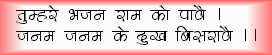 तुम्हरे भजन राम को पावै ।
जनम जनम के दुख बिसरावै ।।